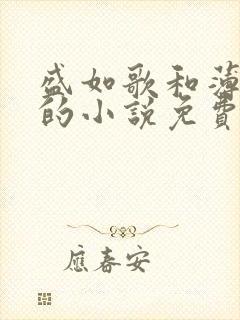 盛如歌和薄
的小説免費
應春安